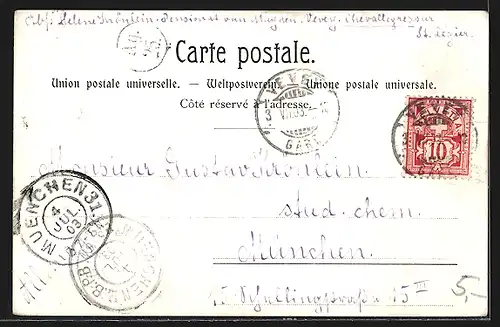 Abs. Helene Fröhlein - Pensionat van Muyden. Vevey. Chevallegres sur
St. Légier.
Carte postale.
Union postale universelle. — Weltpostverein. — Unione postale universale.
Côté réservé à l'adresse.
VEVEY
VII.03.
GARE
HELVETIA
10
Monsieur Gustav Fröhlein
stud. chem.
München.
Schellingstraße 45 III
MUENCHEN 31.
4 JUL 03
MUENCHEN
5,-